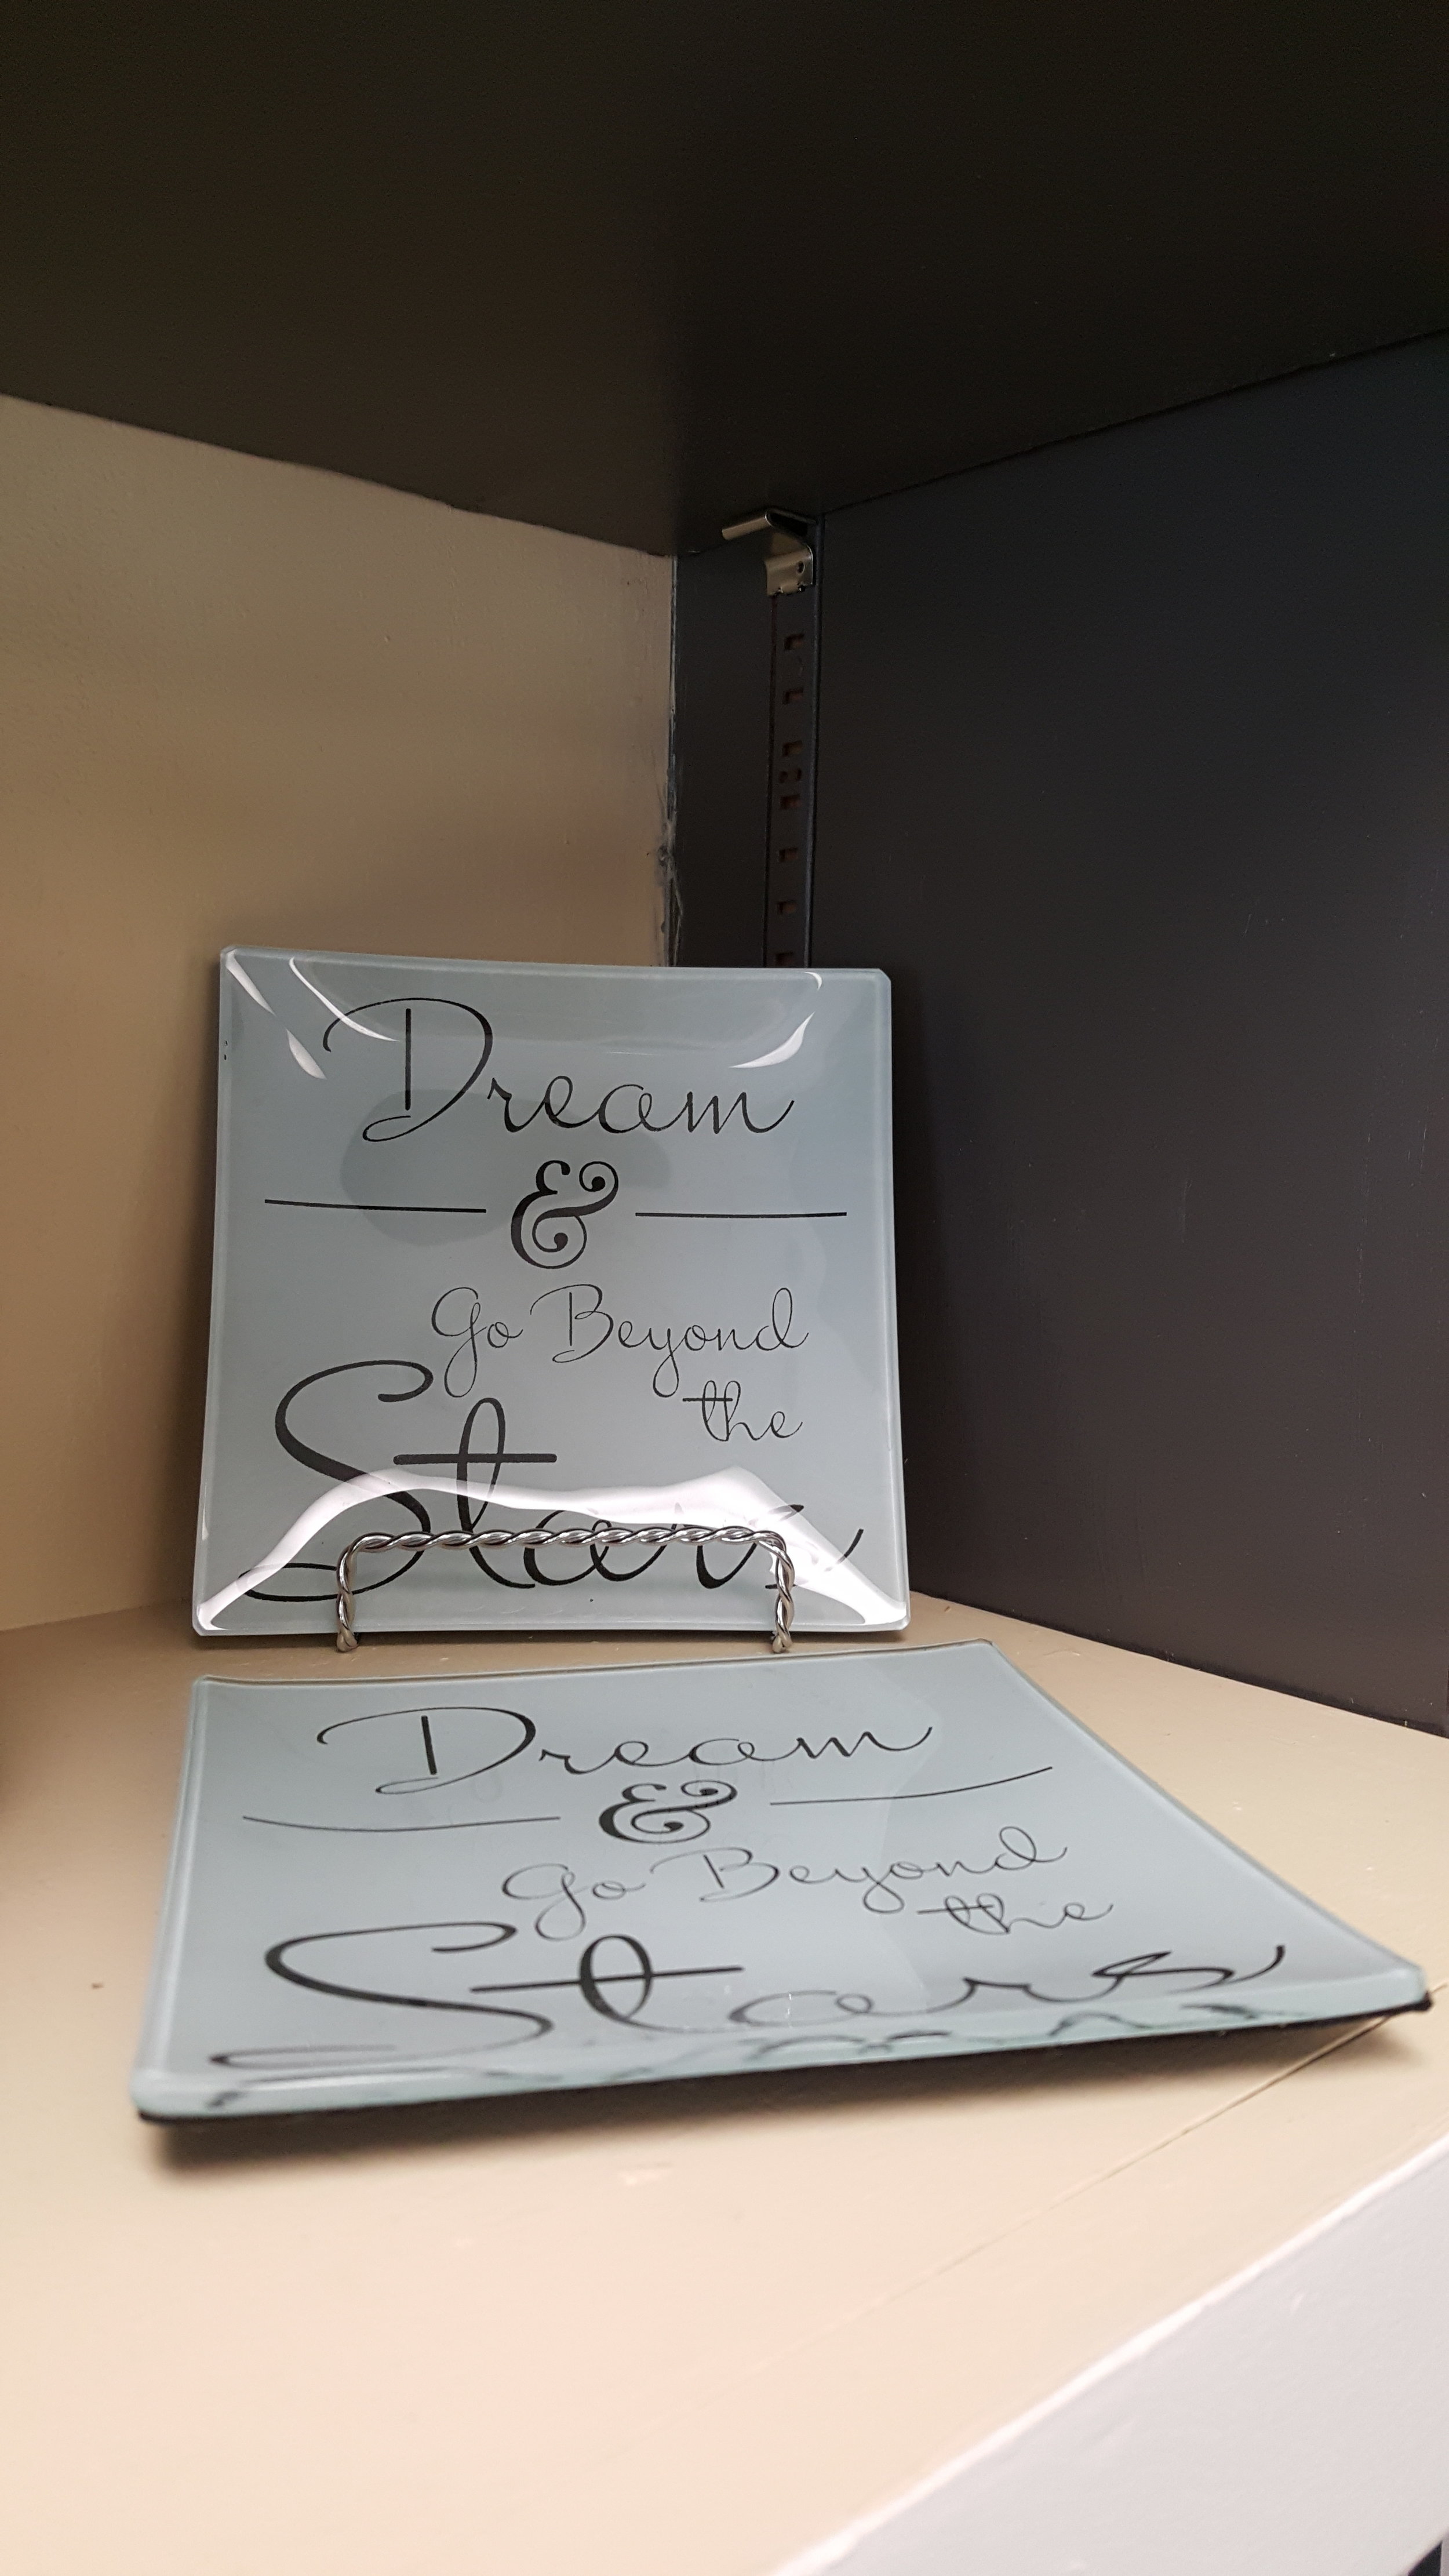 Dream
&
Go Beyond
the
Stars
Dream
&
Go Beyond
the
Stars